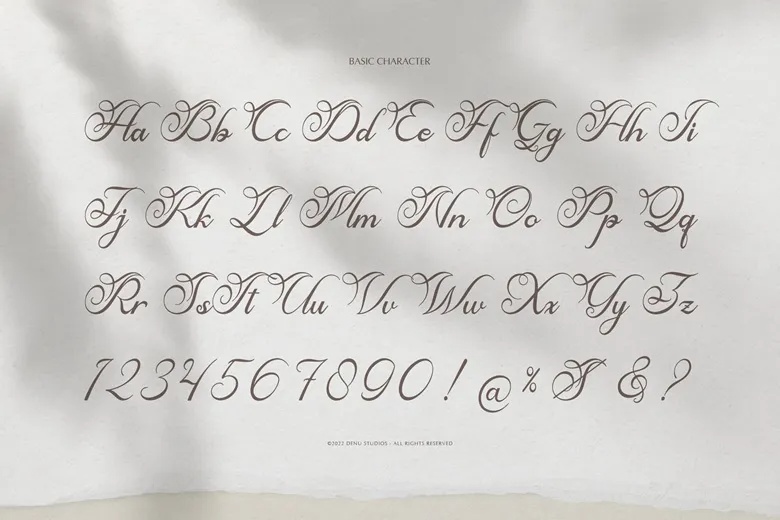 BASIC CHARACTER
Aa Bb Cc Dd Ee Ff Gg Hh Ii
Jj Kk Ll Mm Nn Oo Pp Qq
Rr Ss Tt Uu Vv Ww Xx Yy Zz
1234567890! @ % $ & ?
©2022 DENU STUDIOS - ALL RIGHTS RESERVED